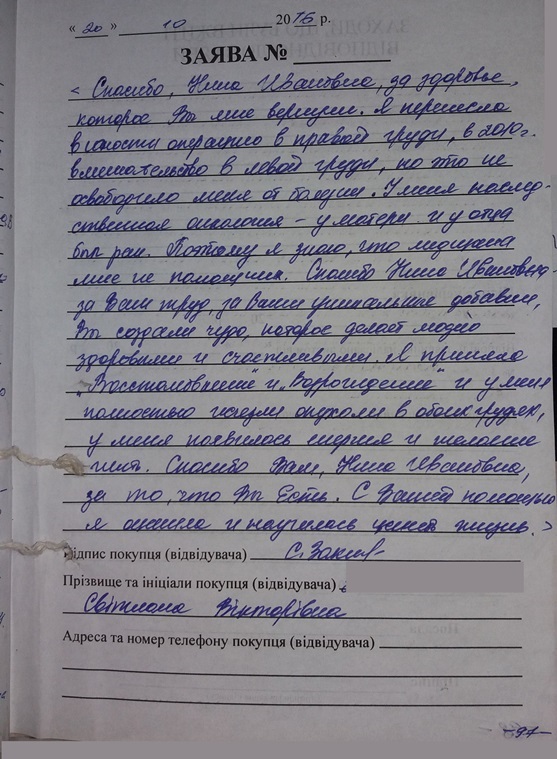 « 20 » 10 2016 р.
ЗАЯВА №
< Спасибо, Нина Ивановна, за здоровье,
которое Вы мне вернули. Я перенесла
в юности операцию в правой груди, в 2010г.
вмешательство в левой груди, но это не
освободило меня от болезни. У меня наслед-
ственная онкология – у матери и у отца
был рак. Поэтому я знаю, что медицина
мне не помощник. Спасибо Нина Ивановна
за Ваш труд, за Ваши уникальные добавки,
Вы создали чудо, которое делает людей
здоровыми и счастливыми. Я приняла
„Восстановление" и „Возрождение" и у меня
полностью исчезли опухоли в обоих грудях,
у меня появилась энергия и желание
жить. Спасибо Вам, Нина Ивановна,
за то, что Вы Есть. С Вашей помощью
я ожила и научилась жизнь. >
Підпис покупця (відвідувача) С.
Прізвище та ініціали покупця (відвідувача)
Світлана Вікторівна
Адреса та номер телефону покупця (відвідувача)
-97-